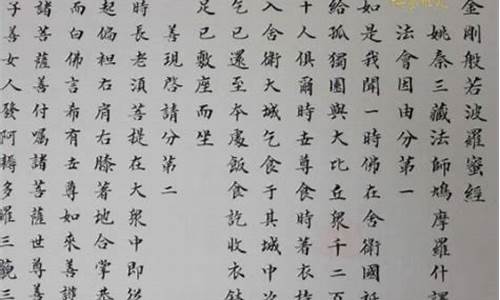 金剛般若波羅蜜經
姚秦三藏法師鳩摩羅什譯
法會因由分第一
如是我聞一時佛在舍衛國祇
給孤獨園與大比丘衆千二百
十人俱爾時世尊食時著衣
入舍衛大城乞食于其城中次
乞已還至本處飯食訖收衣鉢
足已敷座而坐
善現啓請分第二
時長老須菩提在大衆中即從
起偏袒右肩右膝著地合掌恭
而白佛言希有世尊如來善護
諸菩薩善付囑諸菩薩世尊善
子善女人發阿耨多羅三藐三